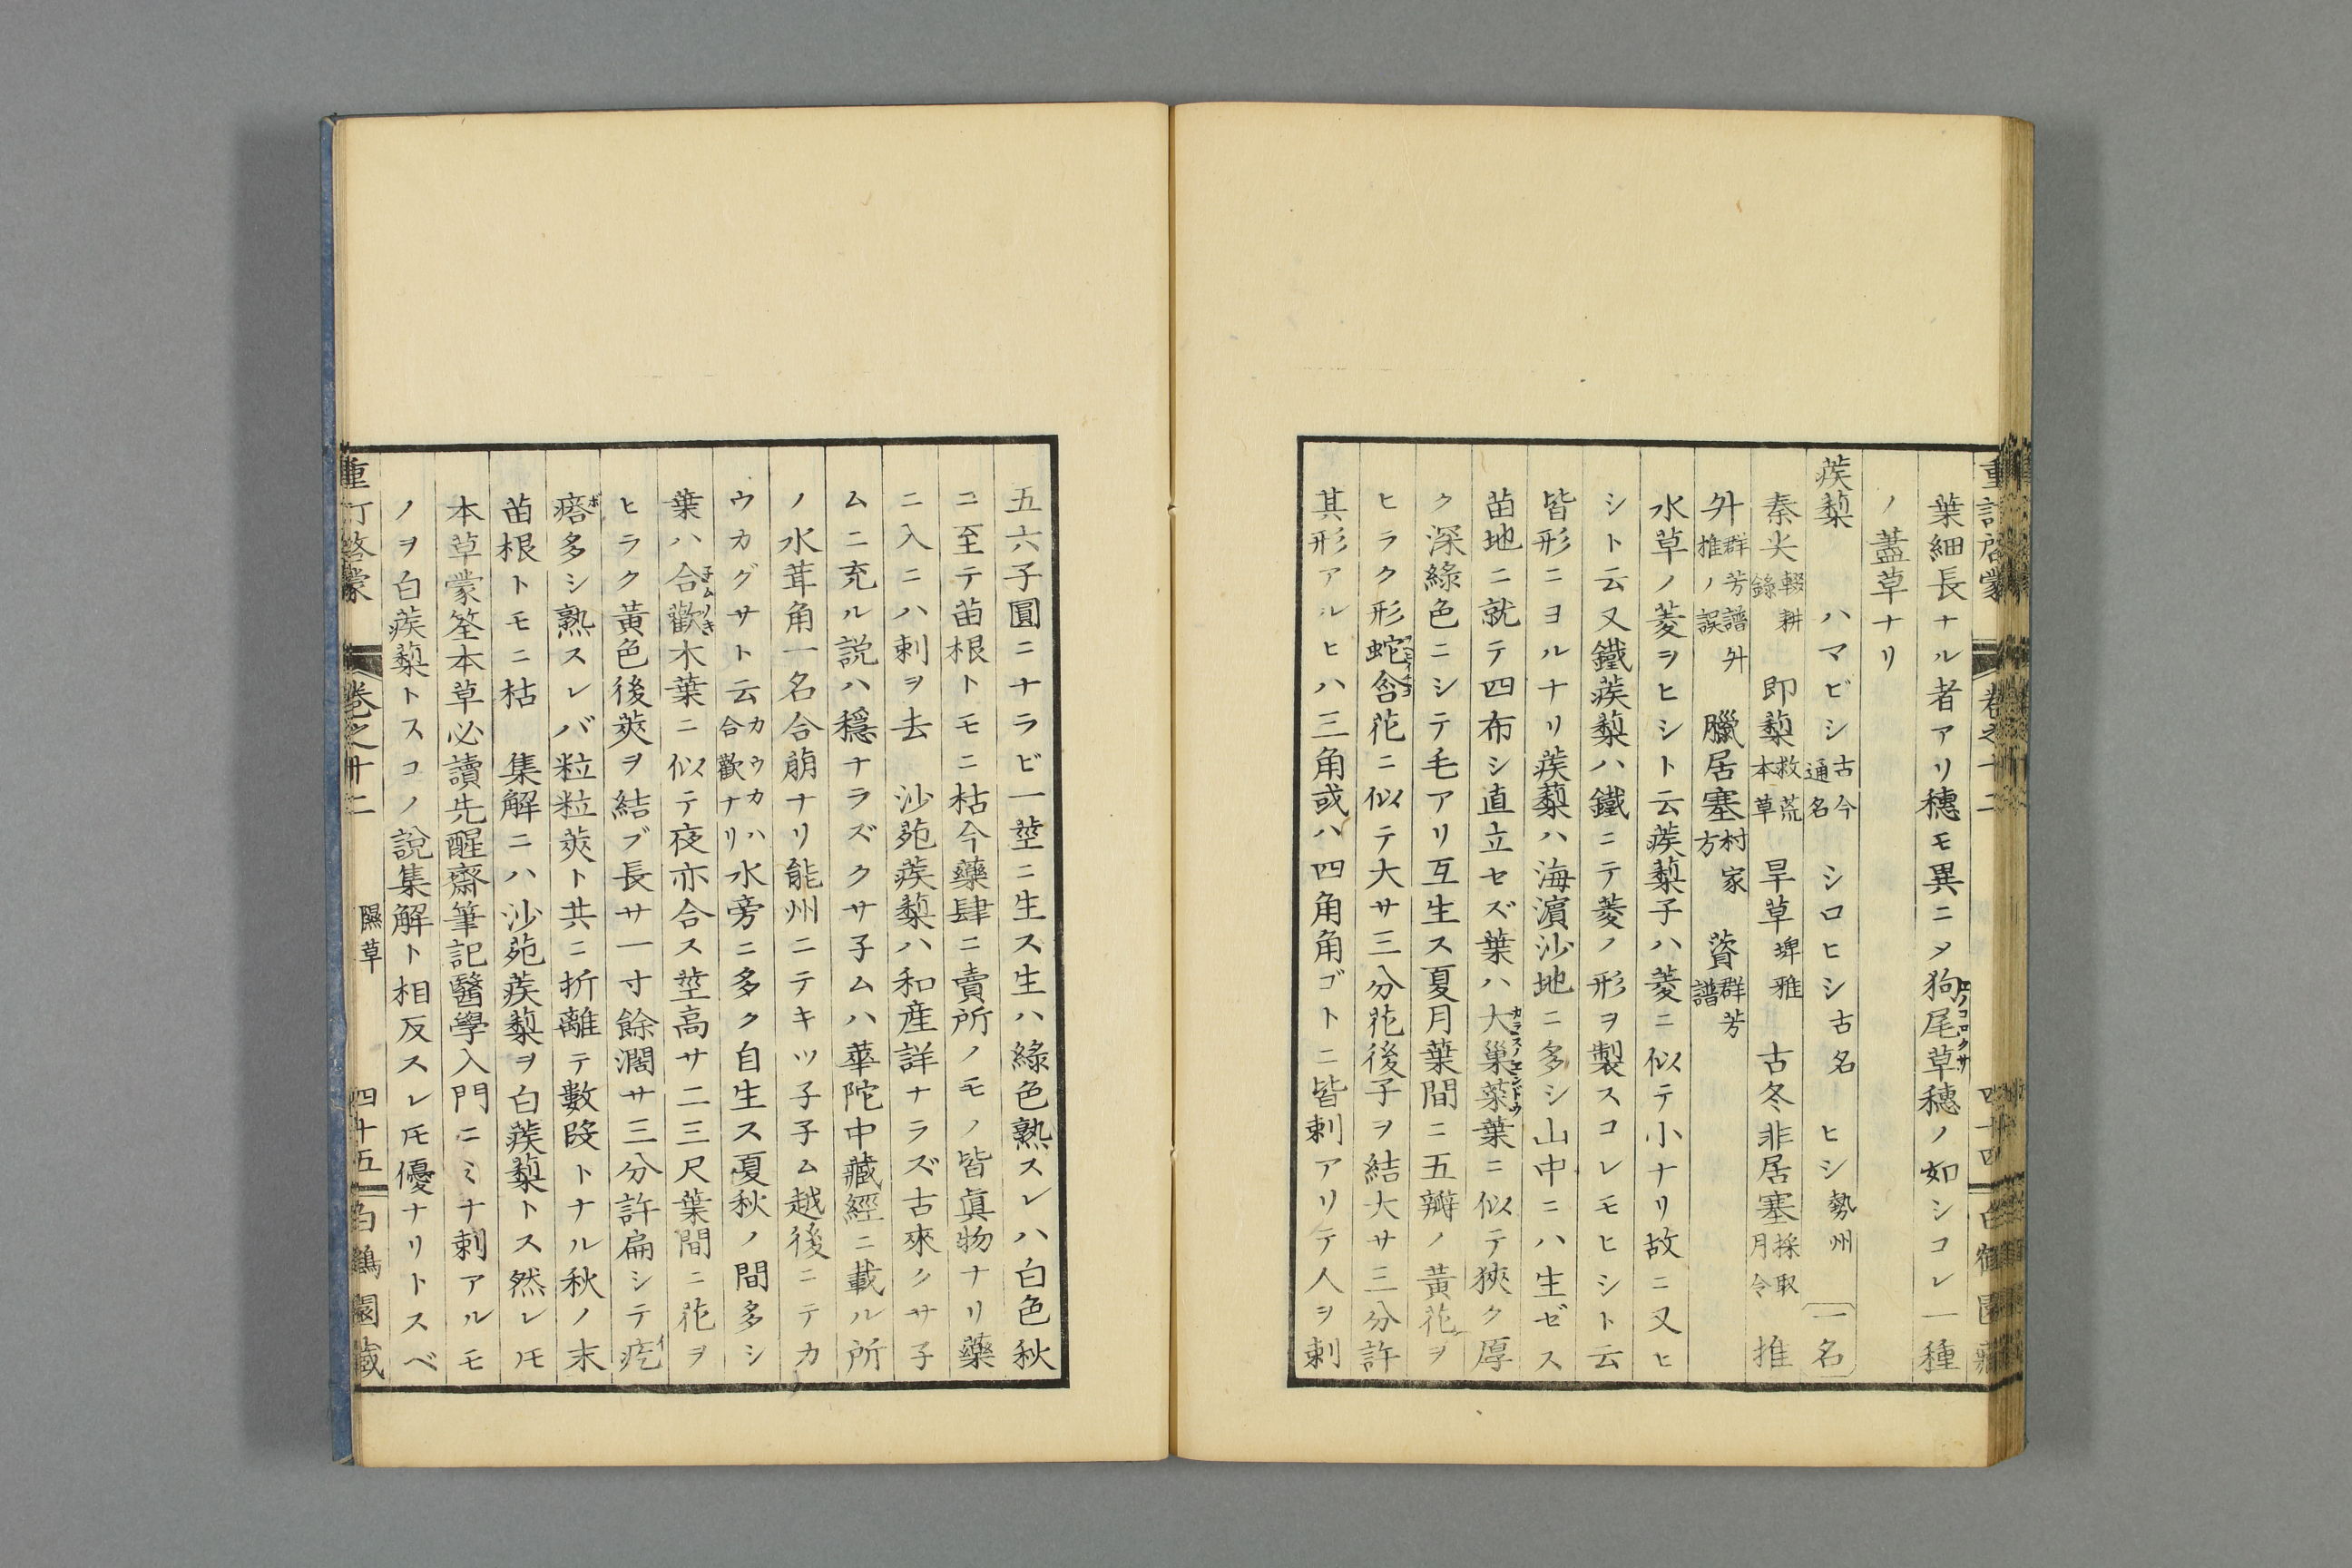 葉細長ナル者アリ穗モ異ニヿ狗尾草穗ノ如シコレ一種
エノコログサ
ノ藎草ナリ
蒺蔾 ハマビシ古今通名 シロヒシ古名 ヒシ勢州 一名
秦尖輟耕錄 即蔾救荒本草 旱草埤雅 古冬非居塞採取月令 推
外群芳譜外推ノ誤 臘居塞村家方 薋群芳譜
水草ノ菱ヲヒシト云蒺蔾子ハ菱ニ似テ小ナリ故ニ又ヒ
シト云又鐵蒺蔾ハ鐵ニテ菱ノ形ヲ製スコレモヒシト云
皆形ニヨルナリ蒺蔾ハ海濵沙地ニ多シ山中ニハ生ゼス
苗地ニ就テ四布シ直立セズ葉ハ大巢菜葉ニ似テ狹ク厚
カラスノエンドウ
ク深綠色ニシテ毛アリ互生ス夏月葉間ニ五瓣ノ黃花ヲ
ヒラク形蛇含花ニ似テ大サ三分花後子ヲ結大サ三分許
其形アルヒハ三角或ハ四角角ゴトニ皆刺アリテ人ヲ刺
重訂啓蒙 卷之十二 四十四 白鶴園藏
五六子圓ニナラビ一莖ニ生ス生ハ綠色熟スレハ白色秋
ニ至テ苗根トモニ枯今藥肆ニ賣所ノモノ皆眞物ナリ藥
ニ入ニハ刺ヲ去 沙苑蒺蔾ハ和産詳ナラズ古來クサ子
ムニ充ル説ハ穩ナラズクサ子ムハ華陀中藏經ニ載ル所
ノ水茸角一名合萠ナリ能州ニテキツ子子ム越後ニテカ
ウカグサト云カウカハ合歡ナリ水旁ニ多ク自生ス夏秋ノ間多シ
葉ハ合歡木葉ニ似テ夜亦合ス莖高サ二三尺葉間ニ花ヲ
子ムノき
ヒラク黃色後莢ヲ結ブ長サ一寸餘濶サ三分許扁シテ疙
イ
瘩多シ熟スレバ粒粒莢ト共ニ折離テ數段トナル秋ノ末
ボ
苗根トモニ枯 集解ニハ沙苑蒺蔾ヲ白蒺蔾トス然レ𪜈
本草蒙筌本草必讀先醒齋筆記醫學入門ニミナ刺アルモ
ノヲ白蒺蔾トスコノ說集解ト相反スレ𪜈優ナリトスベ
重訂啓蒙 卷之十二 隰草 四十五 白鶴園藏